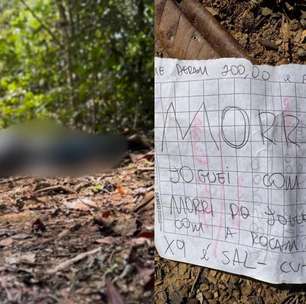 ME DERAM 200,00 E
MORR
JOGUEI COM
MORRI DO JOGO
COM A ROÇAM
X9 É SAL- CV